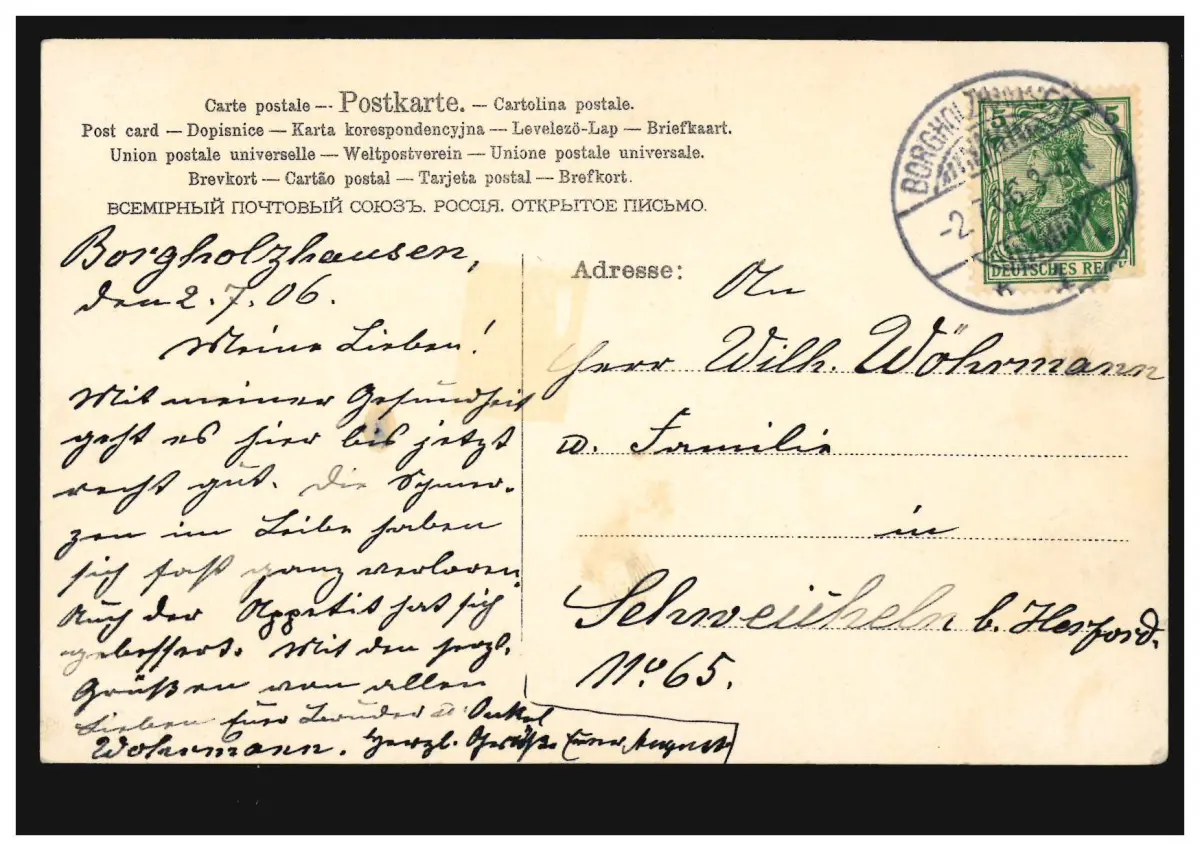 Carte postale — Postkarte. — Cartolina postale.
Post card — Dopisnice — Karta korespondencyjna — Levelező-Lap — Briefkaart.
Union postale universelle — Weltpostverein — Unione postale universale.
Brevkort — Cartão postal — Tarjeta postal — Brefkort.
ВСЕМІРНЫЙ ПОЧТОВЫЙ СОЮЗЪ. РОССІЯ. ОТКРЫТОЕ ПИСЬМО.
BORGHOLZHAUSEN
-2.7.06. 3-4 N
5 5
DEUTSCHES REICH
Borgholzhausen,
den 2.7.06.
Meine Lieben!
Mit meiner Gesundheit
geht es hier bis jetzt
recht gut. Die Schmer-
zen im Leibe haben
sich fast ganz verloren.
Auch der Appetit hat sich
gebessert. Mit den herzl.
Grüßen von allen
Lieben Euer Bruder u. Onkel
Wöhrmann. Herzl. Grüße Euer August
Adresse:
An
Herr Wilh. Wöhrmann
u. Familie
in
Schweicheln b. Herford.
No. 65.